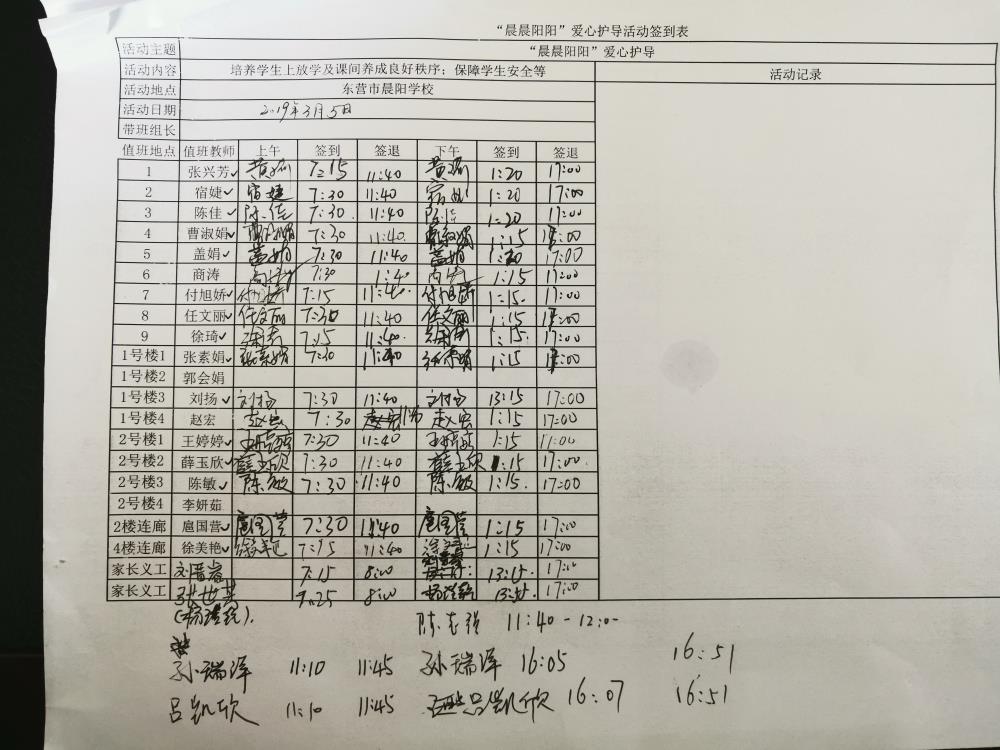 “晨晨阳阳”爱心护导活动签到表
活动主题 “晨晨阳阳”爱心护导
活动内容 培养学生上放学及课间养成良好秩序；保障学生安全等 活动记录
活动地点 东营市晨阳学校
活动日期 2019年3月5日
带班组长
值班地点 值班教师 上午 签到 签退 下午 签到 签退
1 张兴芳✓ 7:15 11:40 1:20 17:00
2 宿婕✓ 宿婕 7:30 11:40 1:20 17:00
3 陈佳✓ 陈佳 7:30 11:40 陈佳 1:20 17:00
4 曹淑娟✓ 曹淑娟 7:30 11:40 曹淑娟 1:15 17:00
5 盖娟✓ 盖娟 7:30 11:40 盖娟 1:20 17:00
6 商涛 商涛 7:30 11:40 商涛 1:15 17:00
7 付旭娇✓ 付旭娇 7:15 11:40 付旭娇 1:15 17:00
8 任文丽✓ 任文丽 7:30 11:40 任文丽 1:15 17:00
9 徐琦✓ 7:15 11:40 1:15 17:00
1号楼1 张素娟✓ 张素娟 7:30 11:40 张素娟 1:15 17:00
1号楼2 郭会娟
1号楼3 刘扬✓ 刘扬 7:30 11:40 刘扬 13:15 17:00
1号楼4 赵宏 赵宏 7:30 赵宏 1:15 17:00
2号楼1 王婷婷✓ 王婷婷 7:30 11:40 王婷婷 1:15 11:00
2号楼2 薛玉欣✓ 薛玉欣 7:30 11:40 薛玉欣 1:15 17:00
2号楼3 陈敏✓ 陈敏 7:30 11:40 陈敏 1:15 17:00
2号楼4 李妍茹
2楼连廊 扈国营✓ 扈国营 7:30 11:40 扈国营 1:15 17:00
4楼连廊 徐美艳✓ 徐美艳 7:15 11:40 1:15 17:00
家长义工 7:15 8:00 13:15 17:00
家长义工 7:25 8:00 17:00
11:40-12:00
孙瑞泽 11:10 11:45 孙瑞泽 16:05 16:51
吕凯欣 11:10 11:45 吕凯欣 16:07 16:51